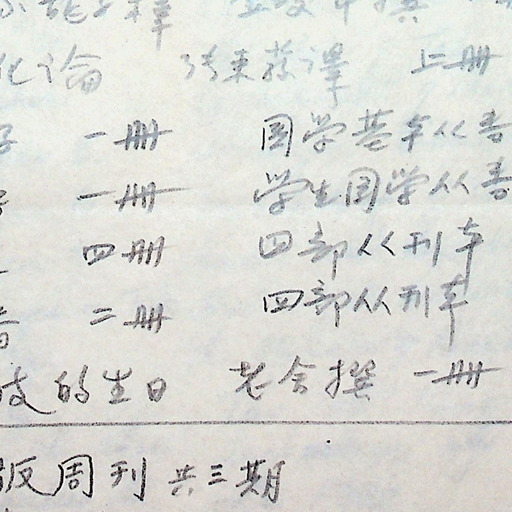 化论 张东荪译 上册
子 一册 国学基本丛书
一册 学生国学丛书
四册 四部丛刊本
二册 四部丛刊本
的生日 老舍撰 一册
版周刊 共三期